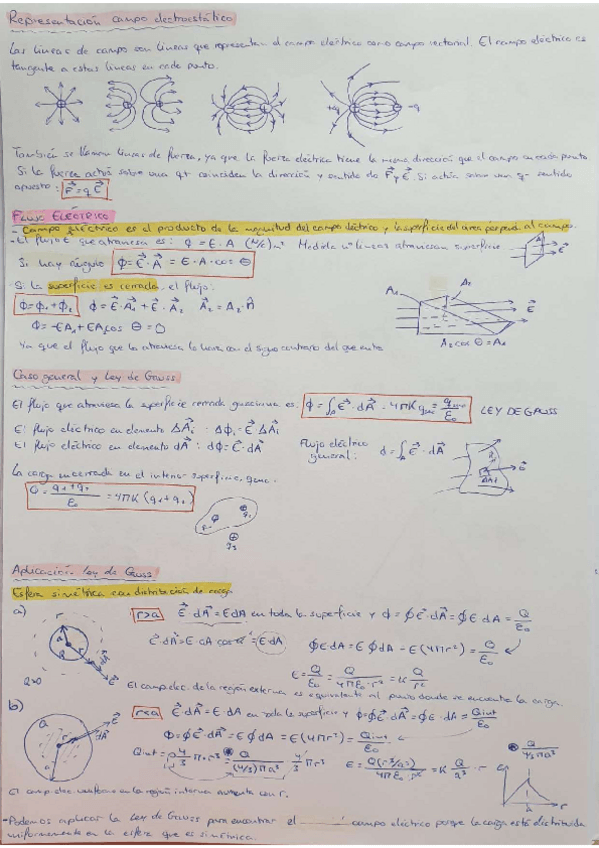 Representación campo electroestático
Las líneas de campo son líneas que representan el campo eléctrico como campo vectorial. El campo eléctrico es
tangente a estas líneas en cada punto.
-q
También se llaman líneas de fuerza, ya que la fuerza eléctrica tiene la misma dirección que el campo en cada punto
Si la fuerza actúa sobre una q+ coinciden la dirección y sentido de F⃗ y E⃗. Si actúa sobre una q- sentido
opuesto: F⃗ = q E⃗
FLUJO ELÉCTRICO
- Campo eléctrico es el producto de la magnitud del campo eléctrico y la superficie del area perpend. al campo.
- El flujo E que atraviesa es: ϕ = E · A (N/C)m² Medida nº líneas atraviesan superficie.
A E⃗
Si hay ángulo ϕ = E⃗ · A⃗ = E · A · cos θ
- Si la superficie es cerrada, el flujo:
ϕ = ϕ₁ + ϕ₂ ϕ = E⃗ · A⃗₁ + E⃗ · A⃗₂ A⃗₂ = A₂ · n̂
A₁ A₂ E⃗
ϕ = -EA₁ + EA₂ cos θ = 0
A₂ cos θ = A₁
Ya que el flujo que la atraviesa lo hace con el signo contrario del que entra
Caso general y Ley de Gauss
El flujo que atraviesa la superficie cerrada gaussiana es: ϕ = ∫ E⃗ · dA⃗ = 4πK q = q/ε₀ LEY DE GAUSS
El flujo eléctrico en elemento ΔA⃗i : Δϕi = E⃗ · ΔA⃗i
El flujo eléctrico en elemento dA⃗ : dϕ = E⃗ · dA⃗
Flujo eléctrico
general: ϕ = ∫ E⃗ · dA⃗
La carga encerrada en el interior superficie, genera:
= 4πK (q₁+q₂)
ε₀
Aplicación Ley de Gauss
Esfera simétrica con distribución de carga
a)
r
a
r>a E⃗ · dA⃗ = E dA en toda la superficie y ϕ = ∮E⃗ · dA⃗ = ∮E dA = Q/ε₀
E⃗ · dA⃗ = E · dA cos = E · dA
∮E dA = E ∮ dA = E (4πr²) = Q/ε₀
E = Q/ε₀ = Q/4πε₀ · r² = K Q/r²
El campo elec. de la región externa es equivalente al punto donde se encuentra la carga.
b)
Q
a
r
E⃗
r<a E⃗ · dA⃗ = E · dA en toda la superficie y ϕ = ∮E⃗ · dA⃗ = ∮E · dA = Qint/ε₀
ϕ = ∮E⃗ · dA⃗ = E ∮ dA = E (4πr²) = Qint/ε₀
Qint = ρ 4/3 π · r³ = Q/(4/3)πa³ · 4/3 πr³
E = Q(r³/a³)/4πε₀ · r² = K Q/a³ · r
Q/4/3 πa³
r
El campo elec. en la región interna aumenta con r.
- Podemos aplicar la Ley de Gauss para encontrar el campo eléctrico porque la carga está distribuida
uniformemente en la esfera que es simétrica.